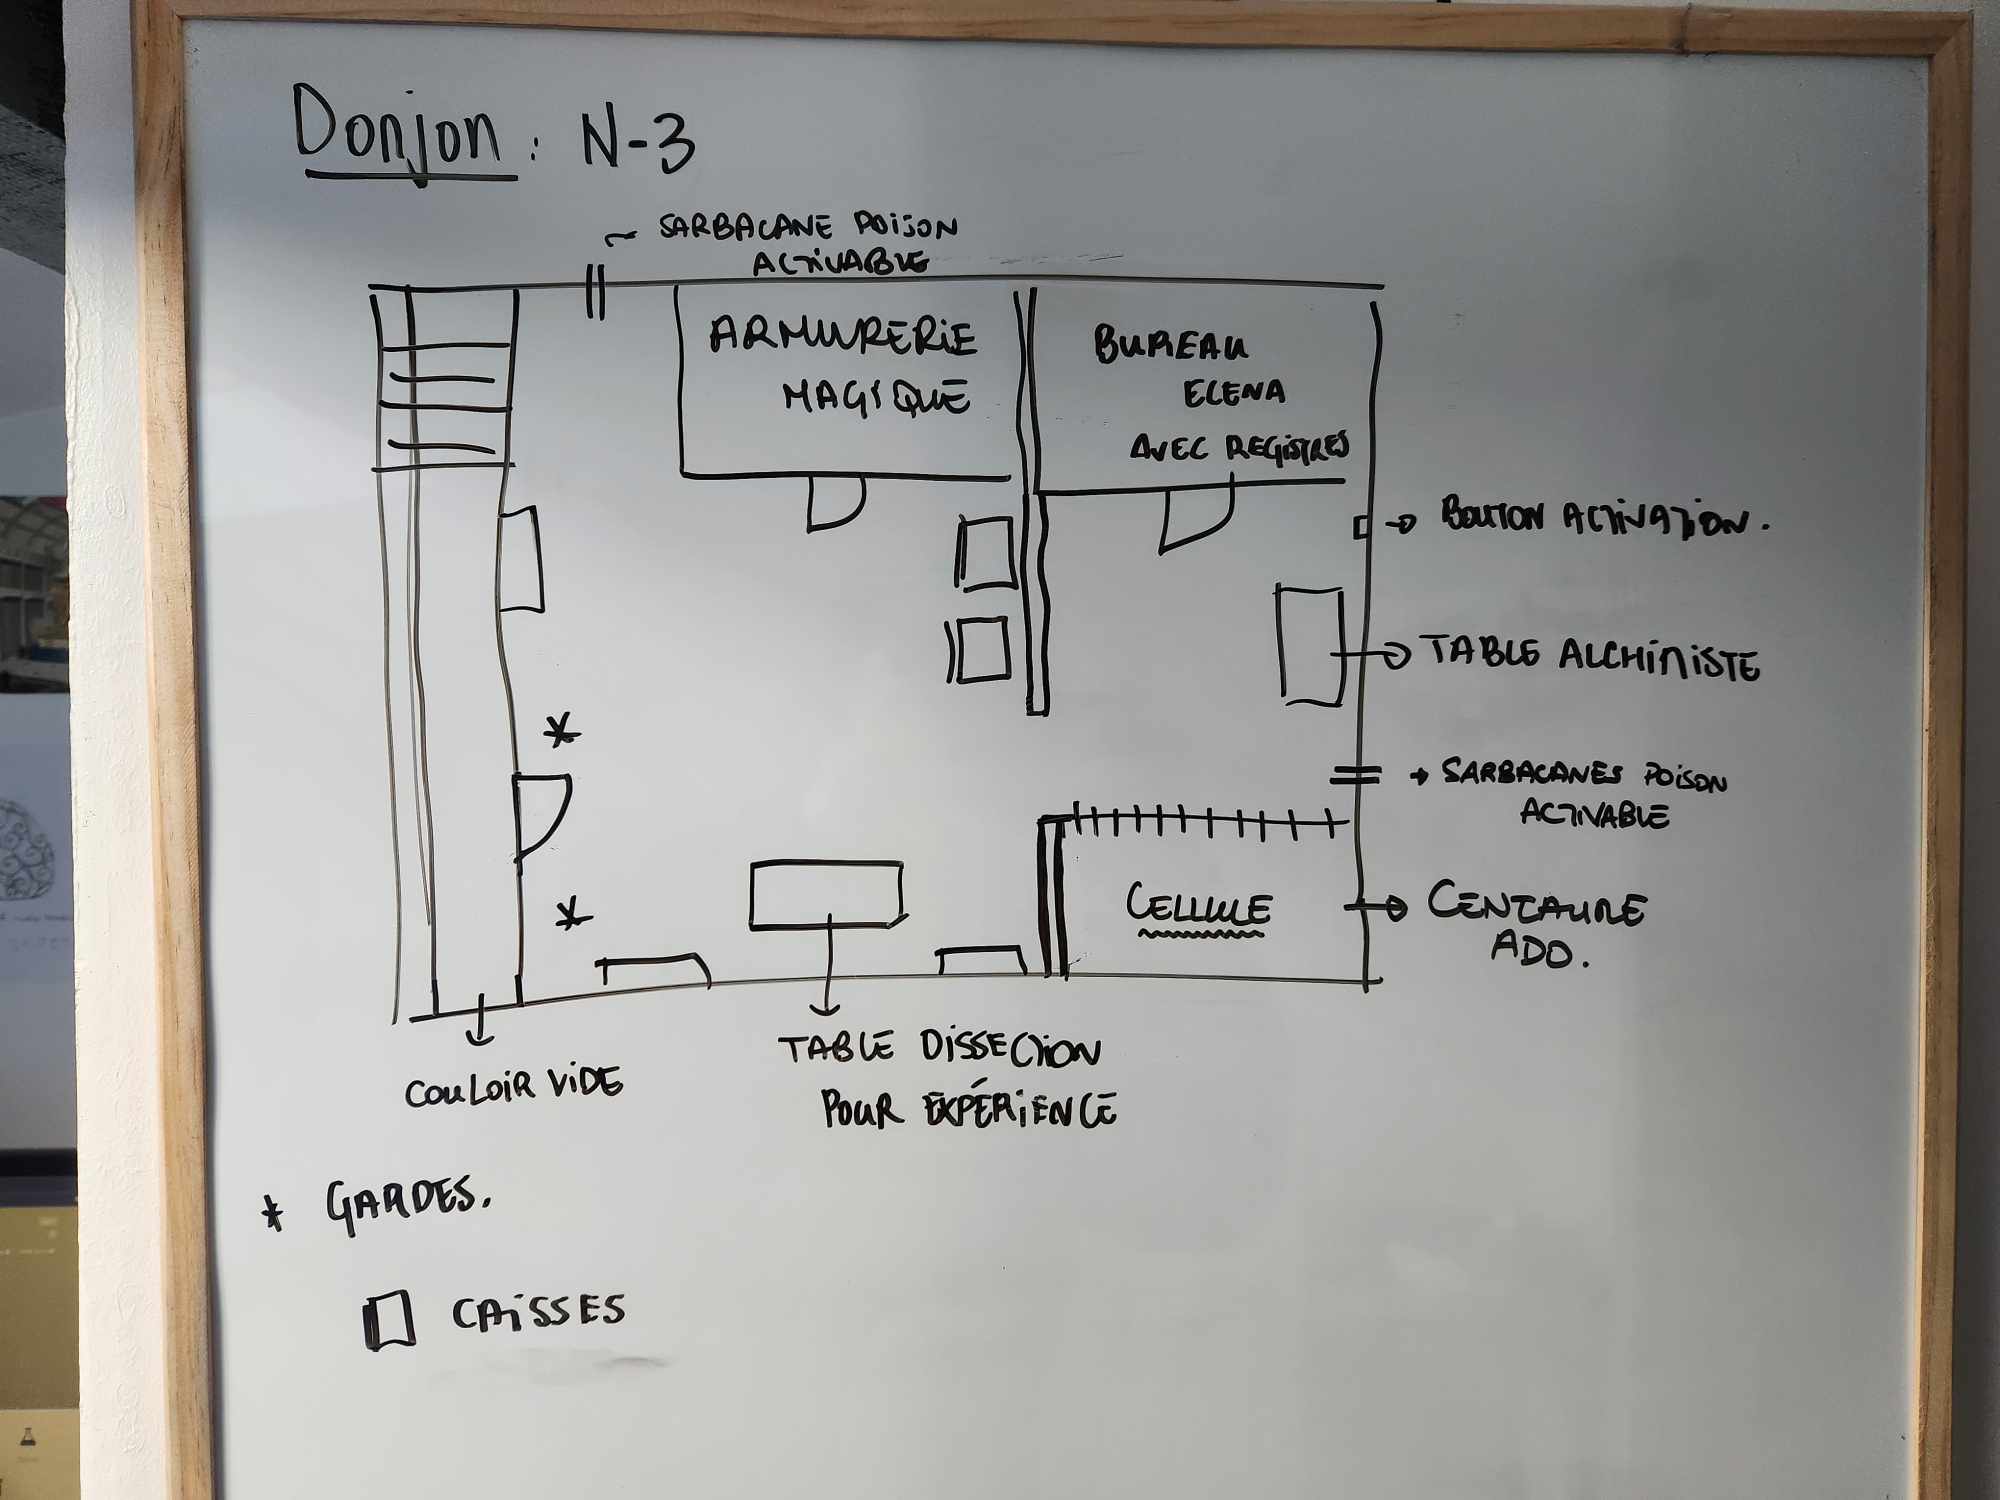 Donjon : N-3
SARBACANE POISON
ACTIVABLE
ARMURERIE
MAGIQUE
BUREAU
ELENA
AVEC REGISTRES
BOUTON ACTIVATION.
TABLE ALCHIMISTE
SARBACANES POISON
ACTIVABLE
CELLULE
CENTAURE
ADO.
TABLE DISSECTION
POUR EXPÉRIENCE
COULOIR VIDE
* GARDES.
CAISSES